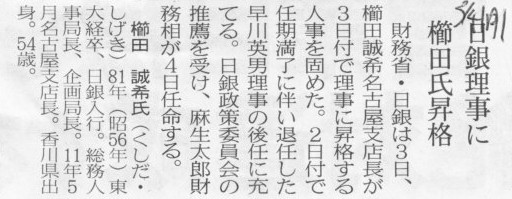 日銀理事に
櫛田氏昇格
財務省・日銀は3日、
櫛田誠希名古屋支店長が
3日付で理事に昇格する
人事を固めた。2日付で
任期満了に伴い退任した
早川英男理事の後任に充
てる。日銀政策委員会の
推薦を受け、麻生太郎財
務相が4日任命する。
櫛田 誠希氏(くしだ・
しげき)81年(昭56年)東
大経卒、日銀入行。総務人
事局長、企画局長。11年5
月名古屋支店長。香川県出
身。54歳。